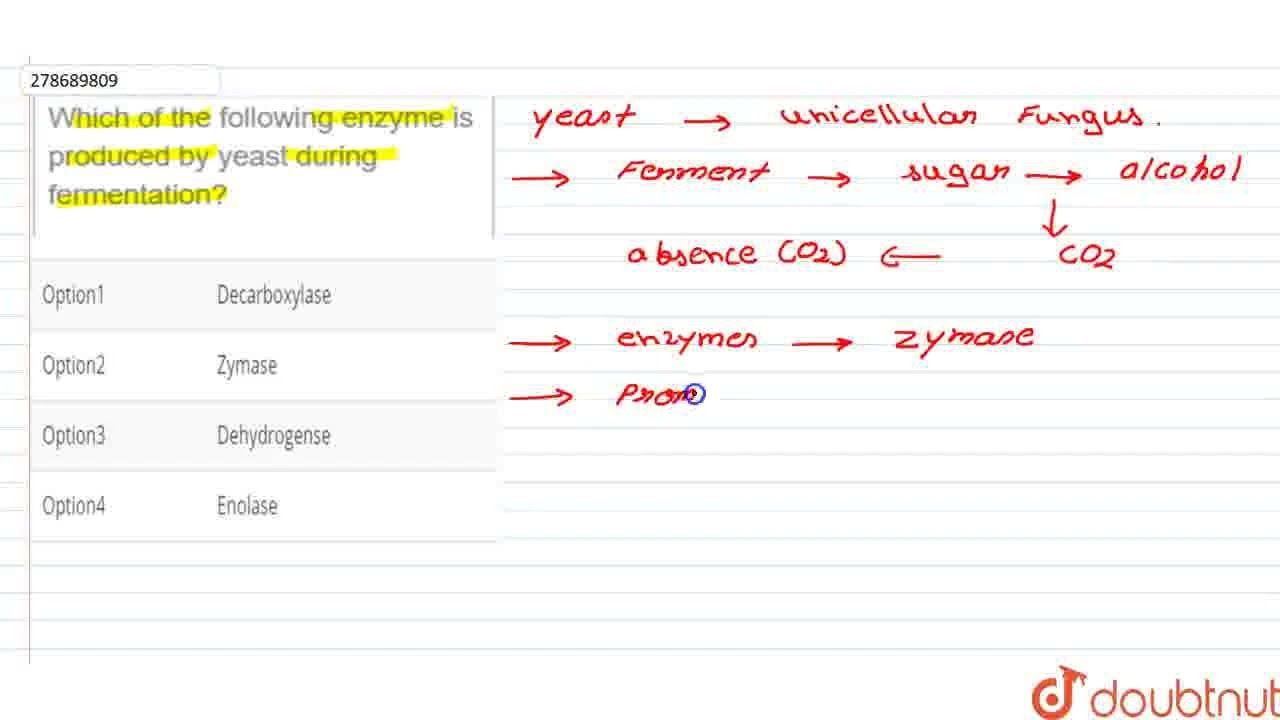 278689809
Which of the following enzyme is
produced by yeast during
fermentation?
Option1 Decarboxylase
Option2 Zymase
Option3 Dehydrogense
Option4 Enolase
yeast → unicellular Fungus.
→ Ferment → sugar → alcohol
↓
absence (O2) ← CO2
→ enzymes → zymase
→ Prom
doubtnut